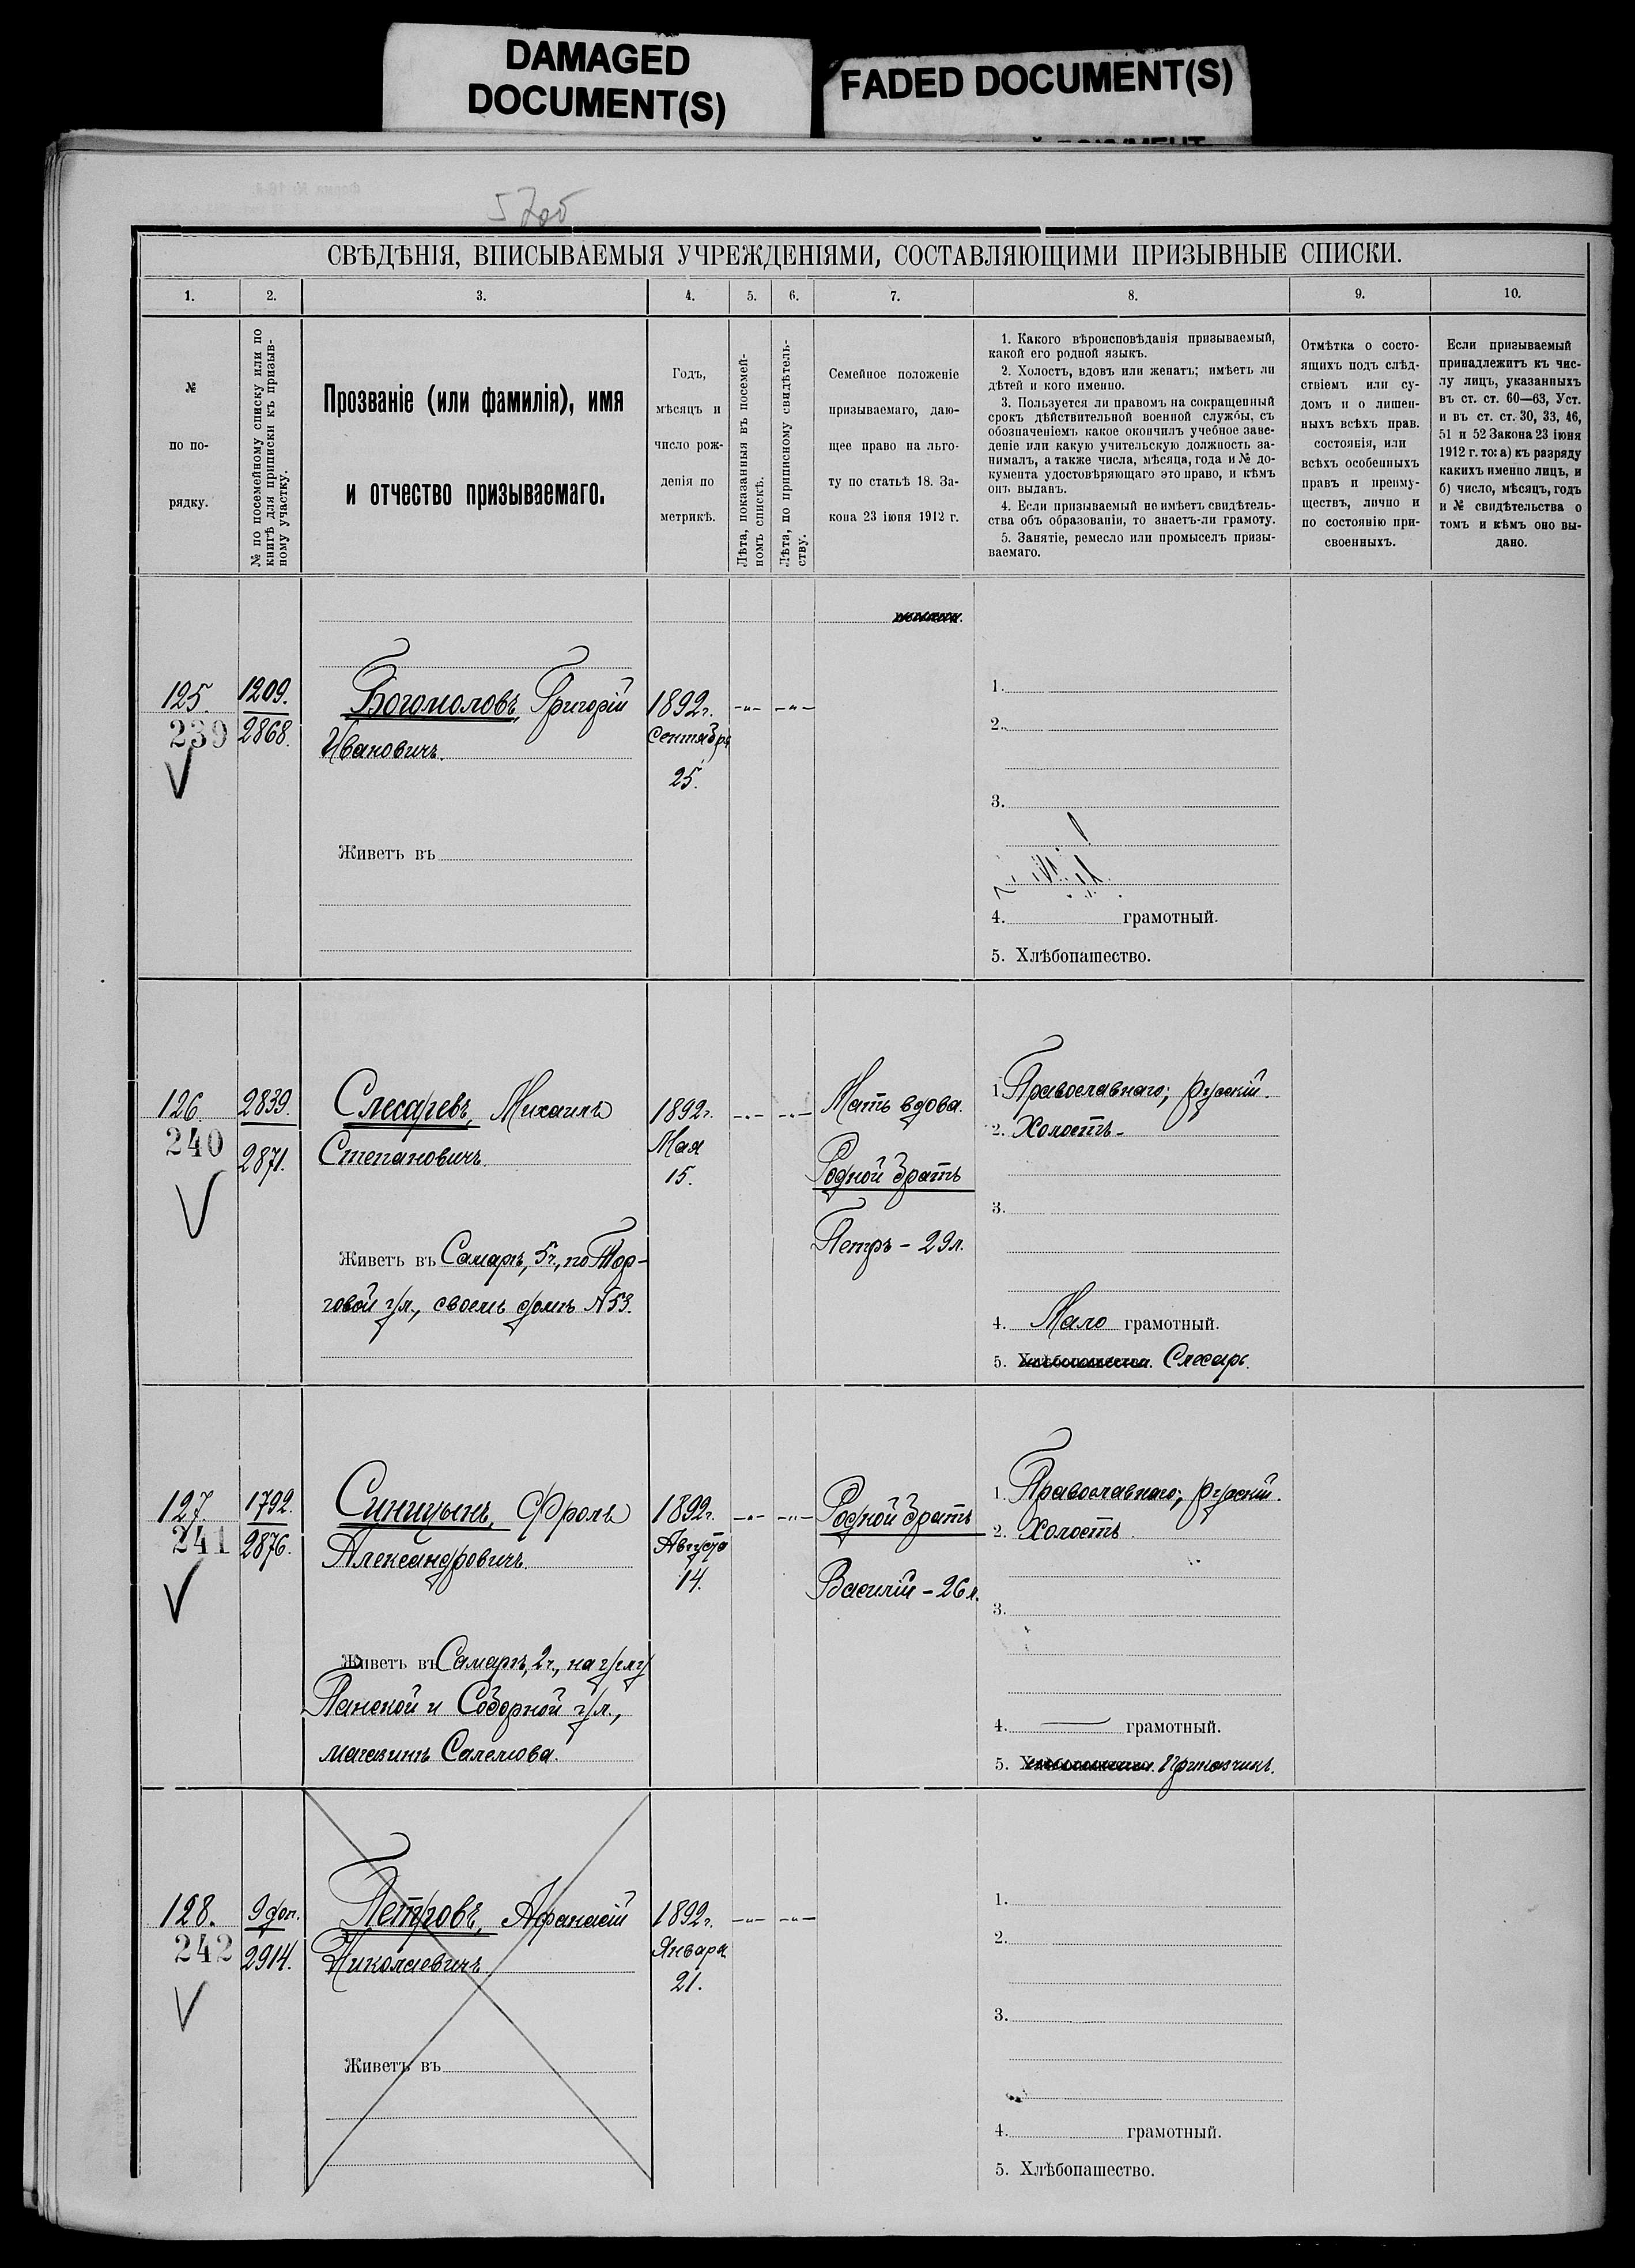 DAMAGED
DOCUMENT(S)
FADED DOCUMENT(S)
СВѢДѢНІЯ, ВПИСЫВАЕМЫЯ УЧРЕЖДЕНІЯМИ, СОСТАВЛЯЮЩИМИ ПРИЗЫВНЫЕ СПИСКИ.
1.
2.
3.
4.
5.
6.
7.
8.
9.
10.
№
по по-
рядку.
№ по посемейному списку или по
книгѣ для приписки къ призыв-
ному участку.
Прозваніе (или фамилія), имя
и отчество призываемаго.
Годъ,
мѣсяцъ и
число рож-
денія по
метрикѣ.
Лѣта, показанныя въ посемей-
номъ спискѣ.
Лѣта, по приписному свидѣтель-
ству.
Семейное положеніе
призываемаго, даю-
щее право на льго-
ту по статьѣ 18. За-
кона 23 іюня 1912 г.
1. Какого вѣроисповѣданія призываемый,
какой его родной языкъ.
2. Холостъ, вдовъ или женатъ; имѣетъ ли
дѣтей и кого именно.
3. Пользуется ли правомъ на сокращенный
срокъ дѣйствительной военной службы, съ
обозначеніемъ какое окончилъ учебное заве-
деніе или какую учительскую должность за-
нималъ, а также числа, мѣсяца, года и № до-
кумента удостовѣряющаго это право, и кѣмъ
онъ выданъ.
4. Если призываемый не имѣетъ свидѣтель-
ства объ образованіи, то знаетъ-ли грамоту.
5. Занятіе, ремесло или промыселъ призы-
ваемаго.
Отмѣтка о состо-
ящихъ подъ слѣд-
ствіемъ или су-
домъ и о лишен-
ныхъ всѣхъ прав.
состоянія, или
всѣхъ особенныхъ
правъ и преиму-
ществъ, лично и
по состоянію при-
своенныхъ.
Если призываемый
принадлежитъ къ чис-
лу лицъ, указанныхъ
въ ст. ст. 60—63, Уст.
и въ ст. ст. 30, 33, 46,
51 и 52 Закона 23 іюня
1912 г. то: а) къ разряду
какихъ именно лицъ, и
б) число, мѣсяцъ, годъ
и № свидѣтельства о
томъ и кѣмъ оно вы-
дано.
125.
239
1209.
2868.
Богомоловъ, Григорій
Ивановичъ.
Живетъ въ
1892 г.
Сентября
25.
1.
2.
3.
4. грамотный.
5. Хлѣбопашество.
126.
240
2839.
2871.
Слесаревъ, Михаилъ
Степановичъ
Живетъ въ Самарѣ, 5 ч., по Тор-
говой ул., своемъ домѣ №53.
1892 г.
Мая
15.
Мать вдова.
Родной братъ
Петръ - 29 л.
1. Православнаго; русскій.
2. Холостъ.
3.
4. Мало грамотный.
5. Хлѣбопашество. Слесарь.
127.
241
1792.
2876.
Синицынъ, Фролъ
Александровичъ.
Живетъ въ Самарѣ, 2 ч., на углу
Панской и Соборной ул.,
магазинъ
1892 г.
Августа
14.
Родной братъ
Василій - 26 л.
1. Православнаго; русскій.
2. Холостъ.
3.
4. — грамотный.
5. Хлѣбопашество. Приказчикъ.
128.
242
9 доп.
2914.
Петровъ, Афанасій
Николаевичъ
Живетъ въ
1892 г.
Января
21.
1.
2.
3.
4. грамотный.
5. Хлѣбопашество.